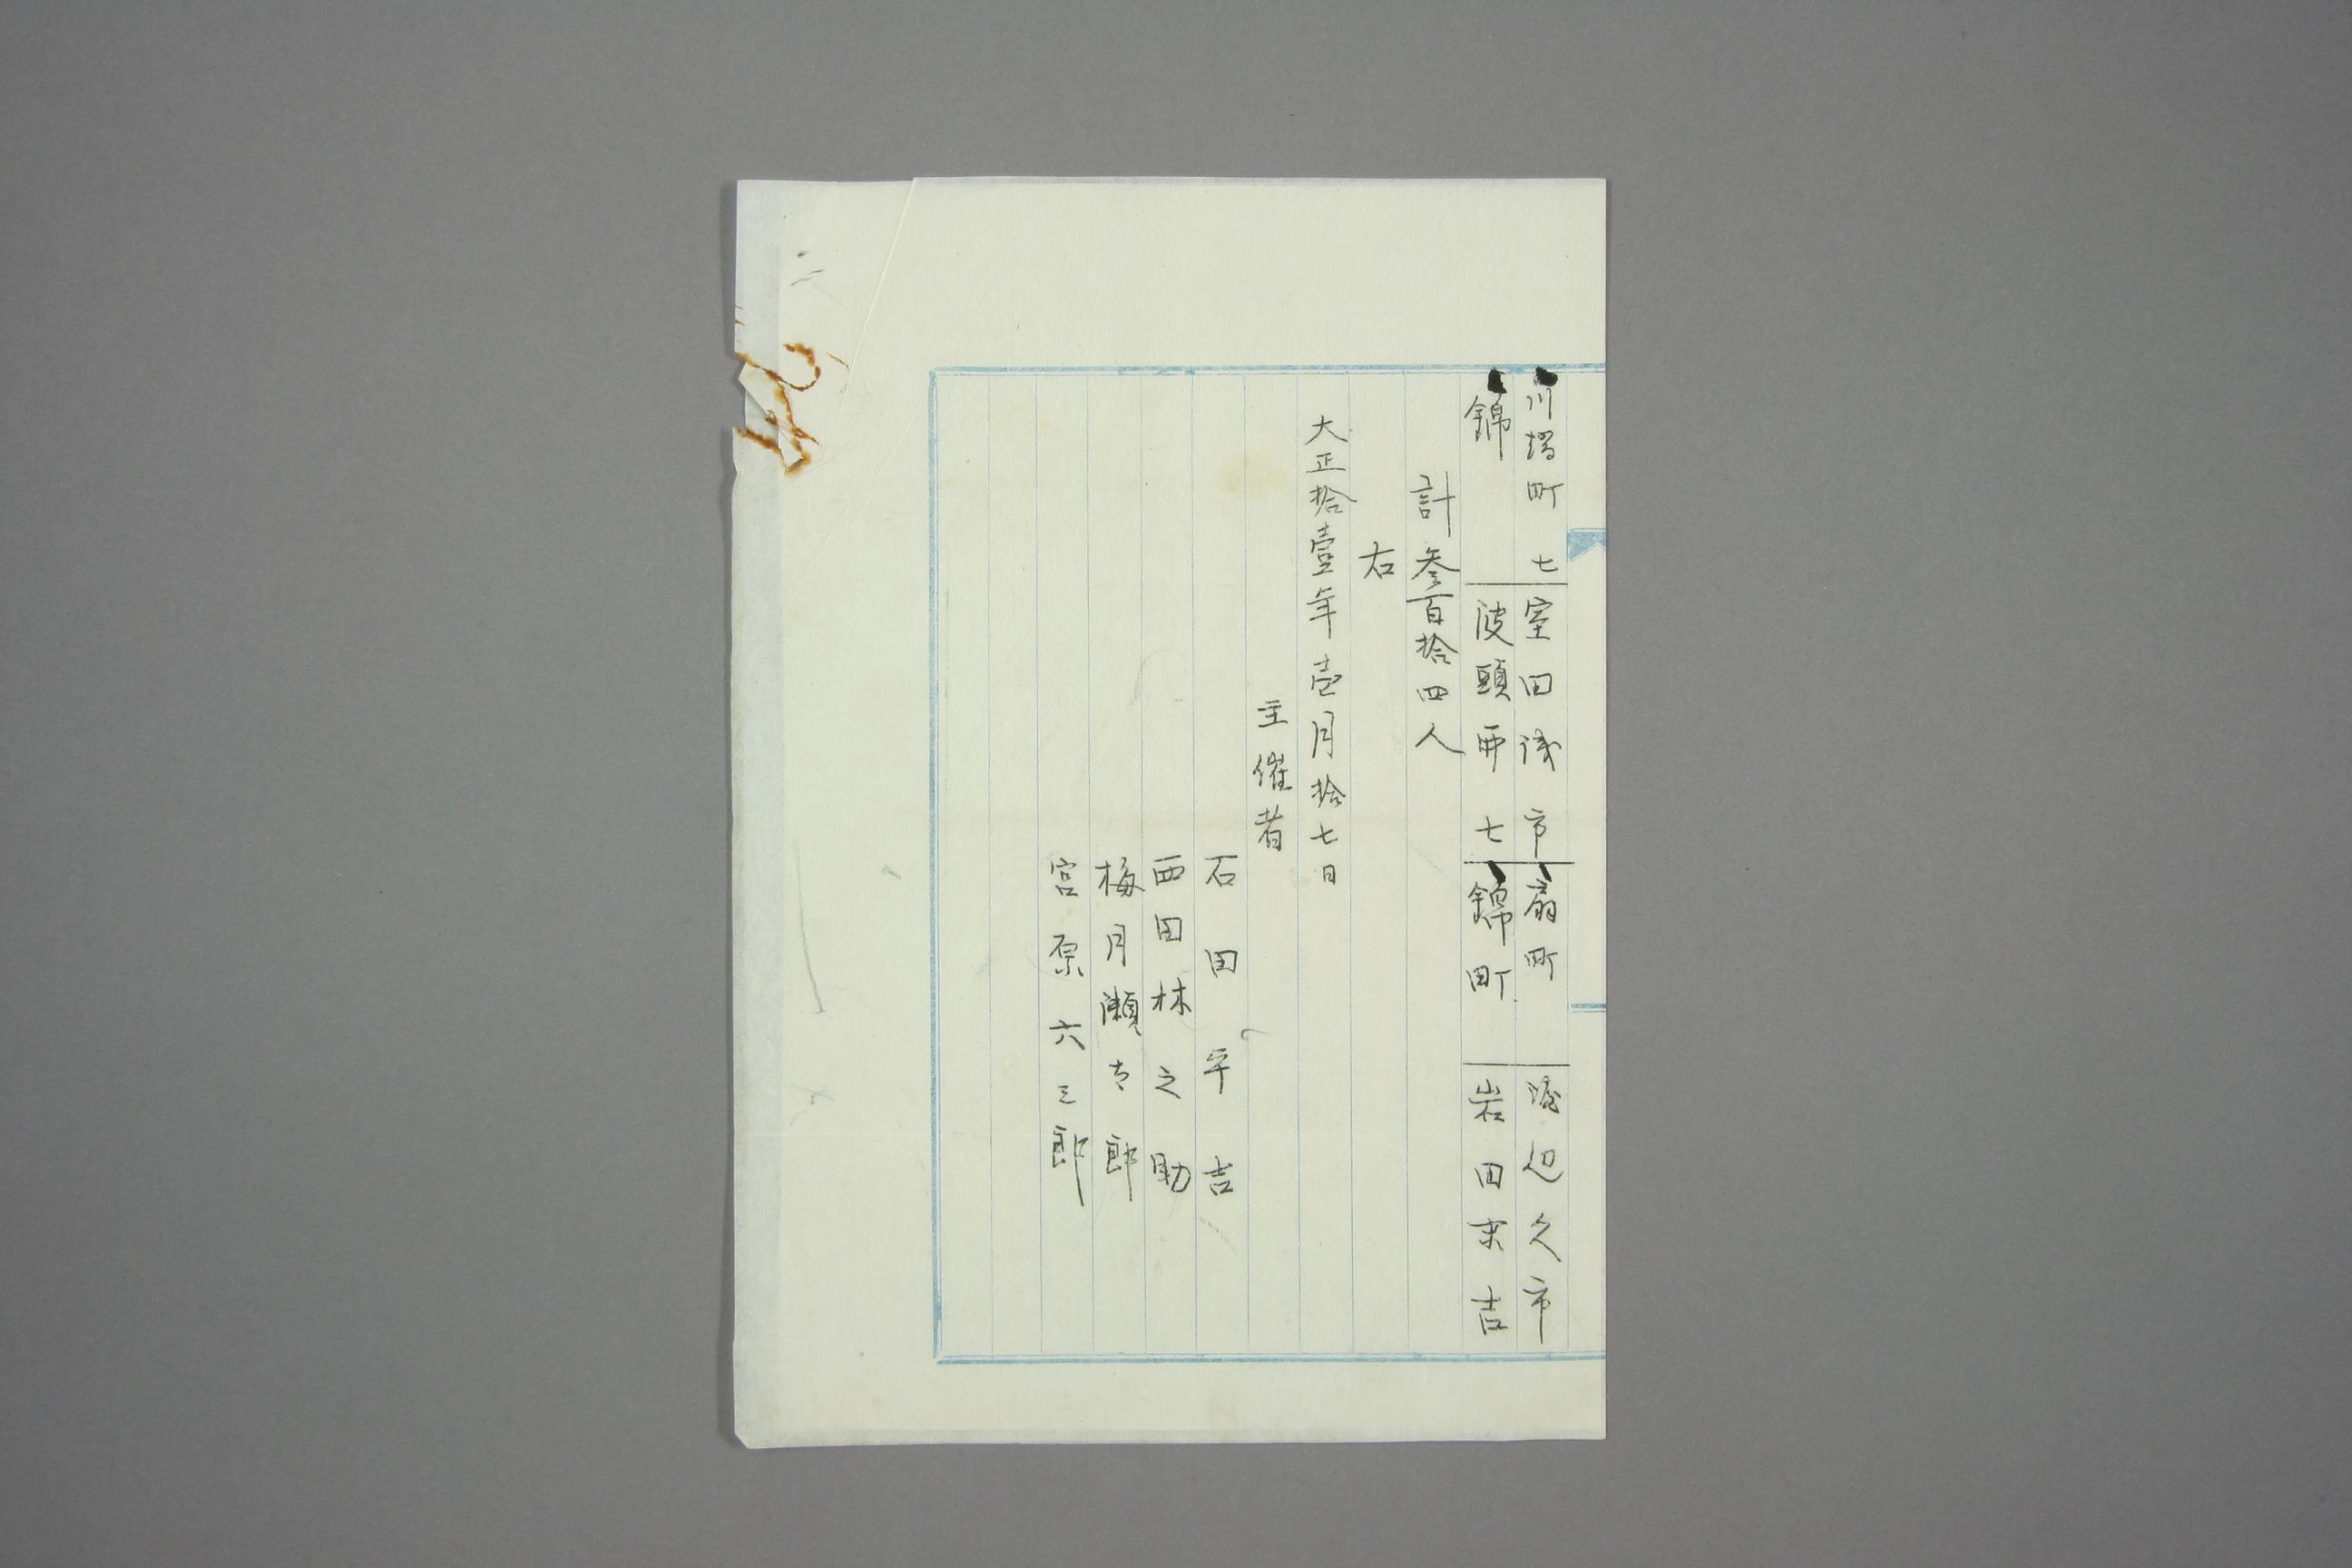 川端町 七 室田浅市 扇町 渡辺久市
錦 波頭亜七 錦町 岩田末吉
計 参百拾四人
右
大正拾壹年壱月拾七日
主催者
石田平吉
西田林之助
梅月瀬太郎
宮原六三郎